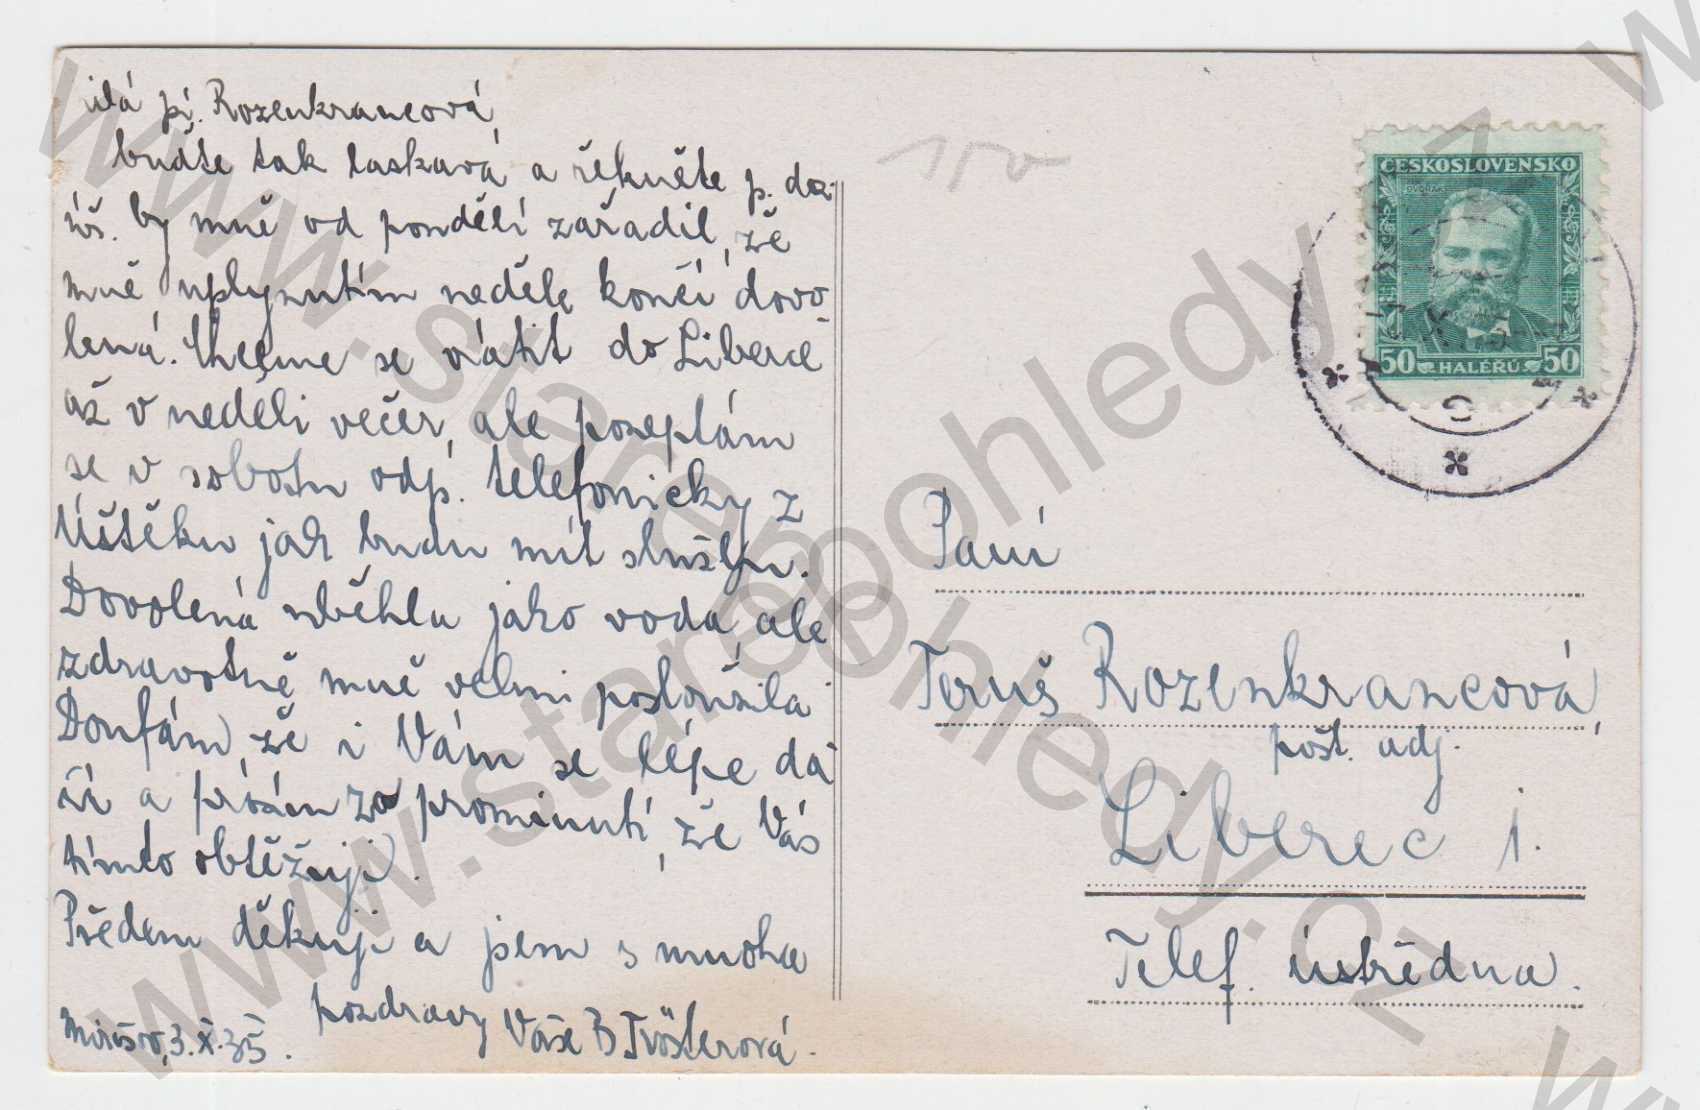 ilá pí. Rozenkrancová,
buďte tak laskavá a řekněte p. doz.
by mně od pondělí zařadil, že
mně uplynutím neděle končí dovo
lená. Chceme se vrátit do Liberce
až v neděli večer, ale pozeptám
se v sobotu odp. telefonicky z
Úštěku jak budu mít službu.
Dovolená uběhla jako voda, ale
zdravotně mně velmi posloužila
Doufám, že i Vám se lépe da
ří a prosím za prominutí, že Vás
tímto obtěžuji.
Předem děkuji a jsem s mnoha
pozdravy Vaše B Trösterová.
3.X.35.
150
ČESKOSLOVENSKO
DVOŘÁK
50 HALÉŘŮ 50
Paní
Teruš Rozenkrancová,
pošt. adj.
Liberec j.
Telef. ústředna.
www.starepohledy.cz
www.starepohledy.cz